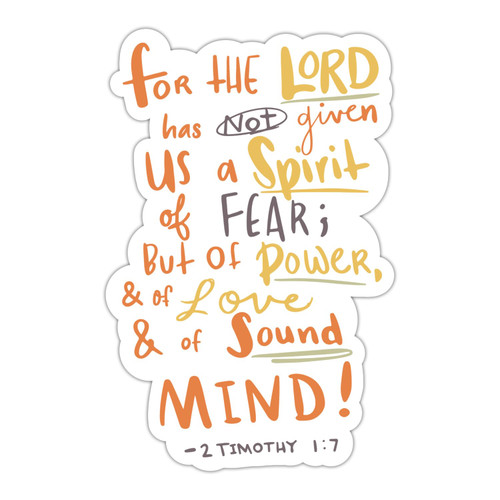 FOR THE LORD
has NOT given
US a Spirit
of FEAR;
But Of POWER,
& of Love
& of Sound
MIND!
- 2 TIMOTHY 1:7